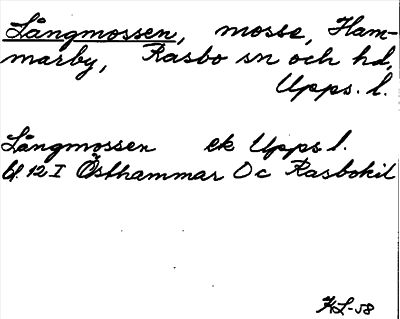 Långmossen, mosse, Ham-
marby, Rasbo sn och hd,
Upps. l.
Långmossen ek Upps l.
bl. 12 I Östhammar Oc Rasbokil
KL-58